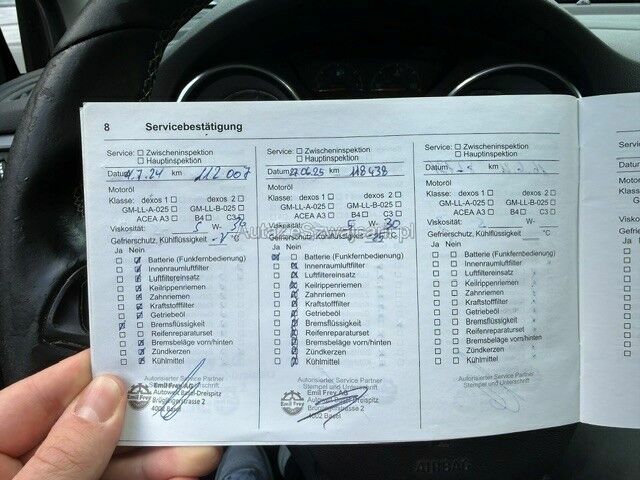 8 Servicebestätigung
Service: ☐ Zwischeninspektion
☐ Hauptinspektion
Datum 4.7.24 km 112 007
Motoröl
Klasse: dexos 1 ☐ dexos 2 ☐
GM-LL-A-025 ☐ GM-LL-B-025 ☐
ACEA A3 ☐ B4 ☐ C3 ☐
Viskosität: 5 W- 30
Gefrierschutz, Kühlflüssigkeit °C
Ja Nein
Batterie (Funkfernbedienung)
Innenraumluftfilter
Luftfiltereinsatz
Keilrippenriemen
Zahnriemen
Kraftstofffilter
Getriebeöl
Bremsflüssigkeit
Reifenreparaturset
Bremsbeläge vorn/hinten
Zündkerzen
Kühlmittel
Autorisierter Service Partner
Stempel und Unterschrift
Emil Frey AG
Autowelt Basel-Dreispitz
Brüglingerstrasse 2
4002 Basel
Service: ☐ Zwischeninspektion
☐ Hauptinspektion
Datum 27.06.25 km 118438
Motoröl
Klasse: dexos 1 ☐ dexos 2 ☐
GM-LL-A-025 ☐ GM-LL-B-025 ☐
ACEA A3 ☐ B4 ☐ C3 ☐
Viskosität: 5 W- 30
Gefrierschutz, Kühlflüssigkeit -25 °C
Ja Nein
Batterie (Funkfernbedienung)
Innenraumluftfilter
Luftfiltereinsatz
Keilrippenriemen
Zahnriemen
Kraftstofffilter
Getriebeöl
Bremsflüssigkeit
Reifenreparaturset
Bremsbeläge vorn/hinten
Zündkerzen
Kühlmittel
Autorisierter Service Partner
Stempel und Unterschrift
Emil Frey AG
Autowelt Basel-Dreispitz
Brüglingerstrasse 2
4002 Basel
Service: ☐ Zwischeninspektion
☐ Hauptinspektion
Datum km
Motoröl
Klasse: dexos 1 ☐ dexos 2 ☐
GM-LL-A-025 ☐ GM-LL-B-025 ☐
ACEA A3 ☐ B4 ☐ C3 ☐
Viskosität: W-
Gefrierschutz, Kühlflüssigkeit °C
Ja Nein
Batterie (Funkfernbedienung)
Innenraumluftfilter
Luftfiltereinsatz
Keilrippenriemen
Zahnriemen
Kraftstofffilter
Getriebeöl
Bremsflüssigkeit
Reifenreparaturset
Bremsbeläge vorn/hinten
Zündkerzen
Kühlmittel
Autorisierter Service Partner
Stempel und Unterschrift
AutazeSzwajcarii.pl
AIRBAG